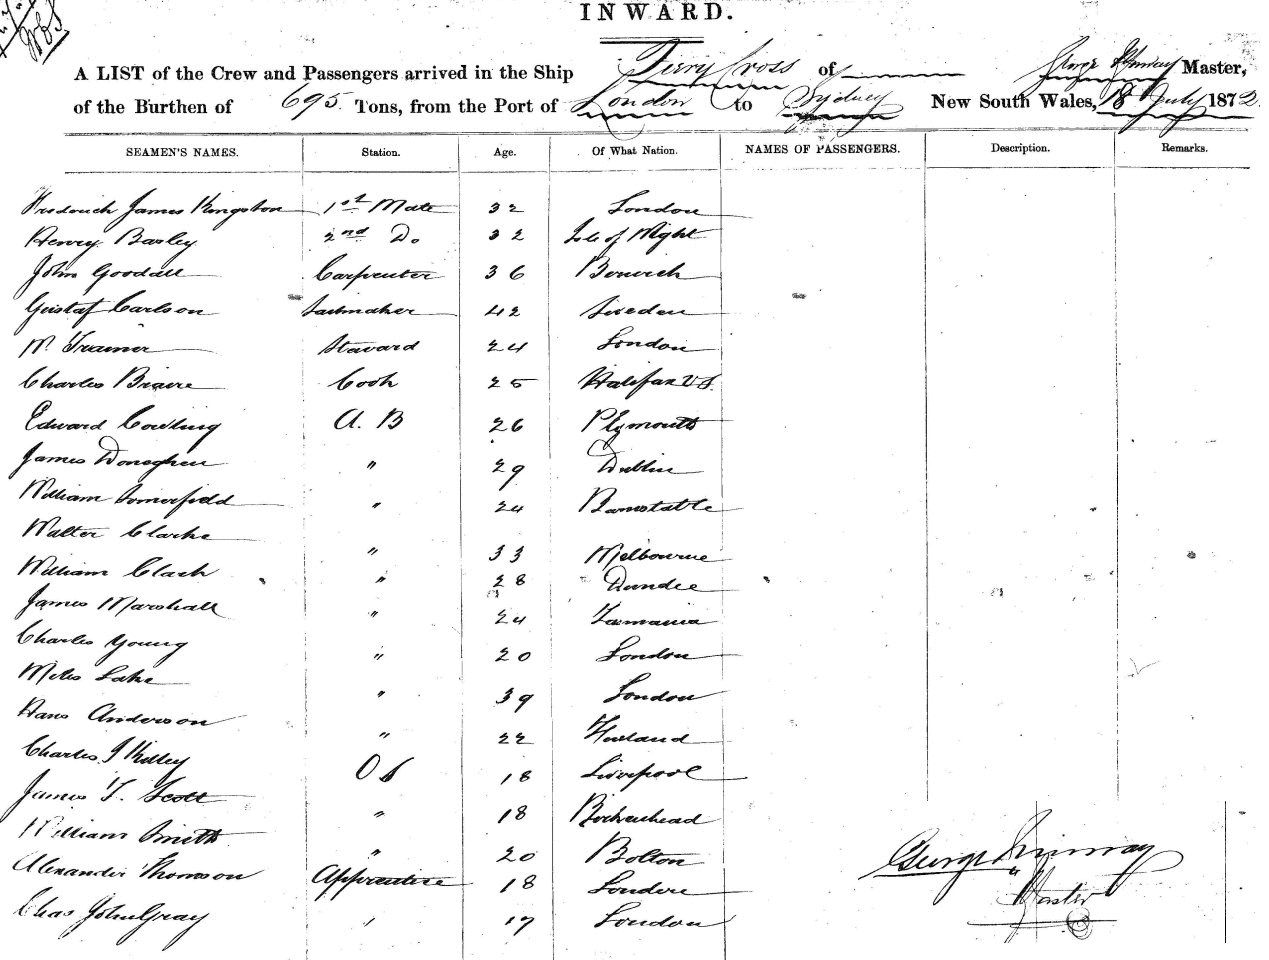 INWARD.
A LIST of the Crew and Passengers arrived in the Ship Fiery Cross of George Master,
of the Burthen of 695 Tons, from the Port of London to Sydney New South Wales, 18 July 1872
SEAMEN'S NAMES. Station. Age. Of What Nation. NAMES OF PASSENGERS. Description. Remarks.
Frederick James Kingston 1st Mate 32 London
Henry Barley 2nd Do 32 Isle of Wight
John Goodall Carpenter 36 Berwick
Gustaf Carlson Sailmaker 42 Sweden
W. Steward 24 London
Charles Cook 25 Halifax
Edward Cowling A. B 26 Plymouth
James Donoghue " 29 Dublin
William Somerfield " 24 Barnstable
Walter Clarke " 33 Melbourne
William Clark " 28 Dundee
James Marshall " 24 Tasmania
Charles Young " 20 London
Miles Lake " 39 London
Hans Anderson " 22
Charles J Killey O S 18 Liverpool
James T. Scott " 18 Birkenhead
William Smith " 20 Bolton
Alexander Thomson Apprentice 18 London
Chas John Gray " 17 London
George
Master